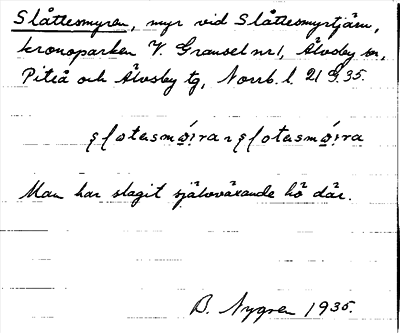 Slåttesmyren, myr vid Slåttesmyrtjärn,
kronoparken V. Gransel nr 1, Älvsby sn,
Piteå och Älvsby tg, Norrb. l. 21 G. 35.
Man har slagit självväxande hö där.
B. Nygren 1935.